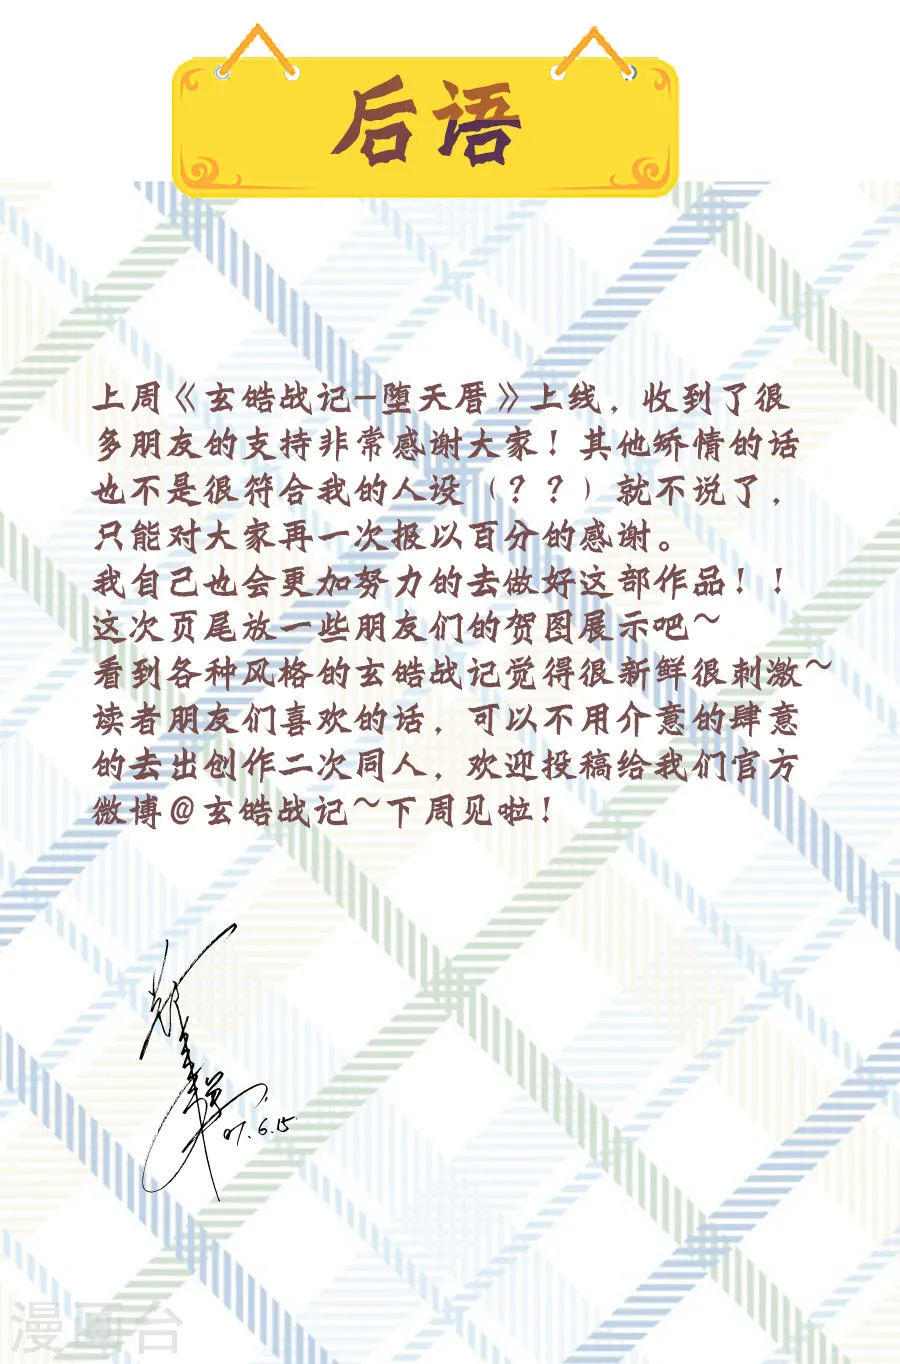 后语
上周《玄皓战记-堕天厝》上线，收到了很
多朋友的支持非常感谢大家！其他矫情的话
也不是很符合我的人设（？？）就不说了，
只能对大家再一次报以百分的感谢。
我自己也会更加努力的去做好这部作品！！
这次页尾放一些朋友们的贺图展示吧~
看到各种风格的玄皓战记觉得很新鲜很刺激~
读者朋友们喜欢的话，可以不用介意的肆意
的去出创作二次同人，欢迎投稿给我们官方
微博@玄皓战记~下周见啦！
07.6.15.
漫画台